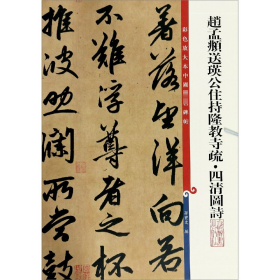 趙孟頫送瑛公住持隆教寺疏·四清圖詩
彩色放大本中國著名碑帖
著落望洋向若
不難浮尊者之杯
推波助瀾所賞鼓